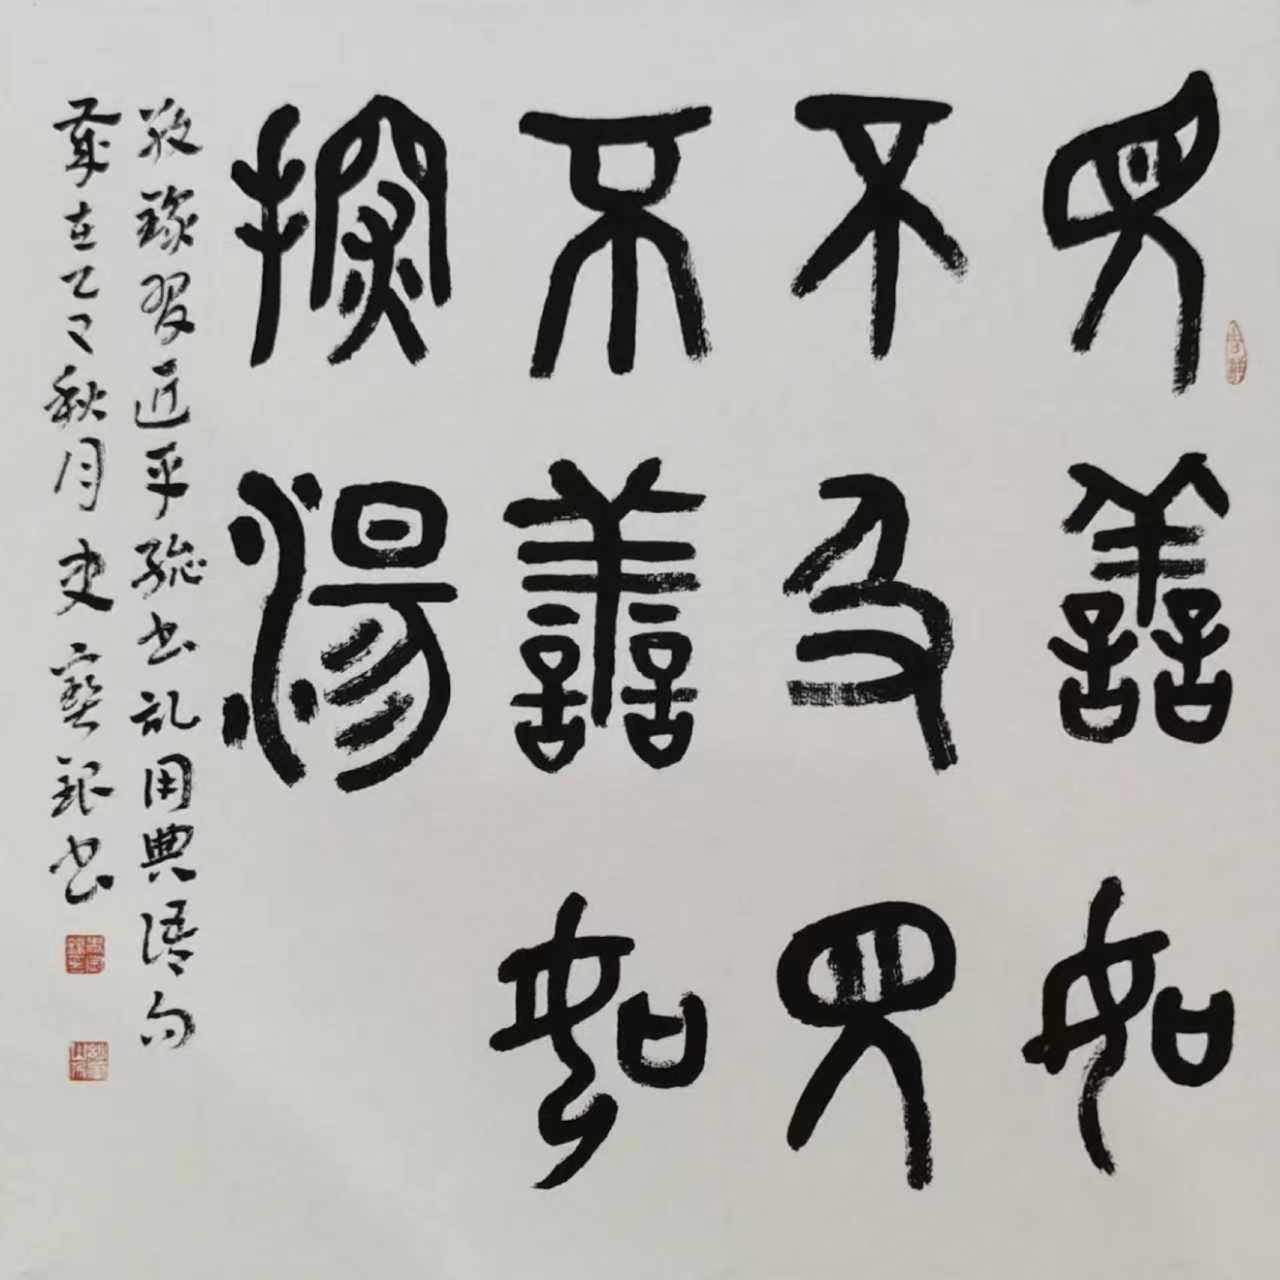 見善如
不及見
不善如
探湯
敬錄習近平總書記用典語句
歲在乙巳秋月史寶銀書